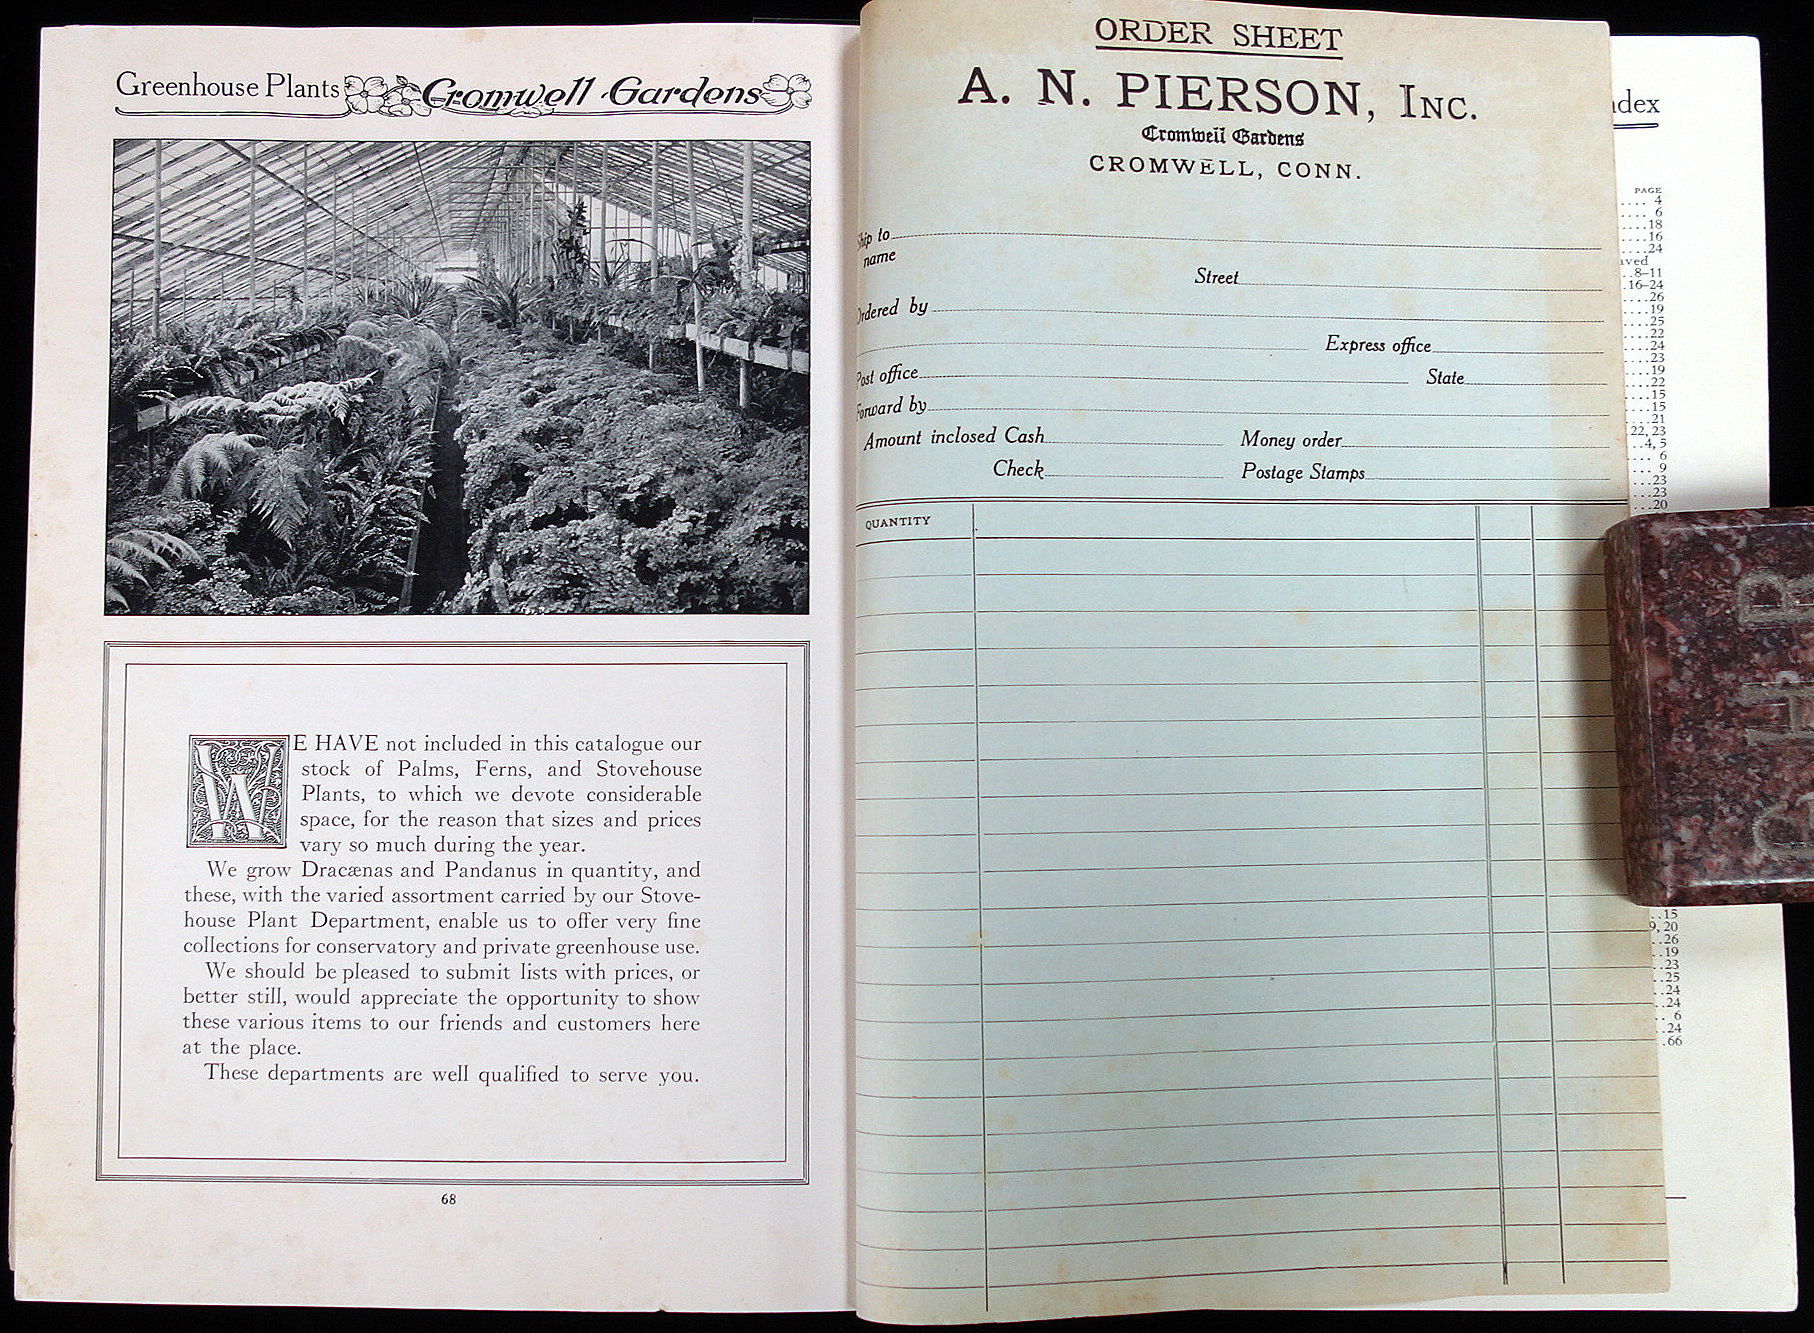 Greenhouse Plants Cromwell Gardens
WE HAVE not included in this catalogue our
stock of Palms, Ferns, and Stovehouse
Plants, to which we devote considerable
space, for the reason that sizes and prices
vary so much during the year.
We grow Dracænas and Pandanus in quantity, and
these, with the varied assortment carried by our Stove-
house Plant Department, enable us to offer very fine
collections for conservatory and private greenhouse use.
We should be pleased to submit lists with prices, or
better still, would appreciate the opportunity to show
these various items to our friends and customers here
at the place.
These departments are well qualified to serve you.
68
ORDER SHEET
A. N. PIERSON, INC.
Cromwell Gardens
CROMWELL, CONN.
Ship to
name
Street
Ordered by
Express office
Post office
State
Forward by
Amount inclosed Cash
Money order
Check
Postage Stamps
QUANTITY
PAGE
4
6
18
16
24
8–11
16–24
26
19
25
22
24
23
19
22
15
15
21
22, 23
4, 5
6
9
23
23
20
15
20
26
19
23
25
24
24
6
24
66